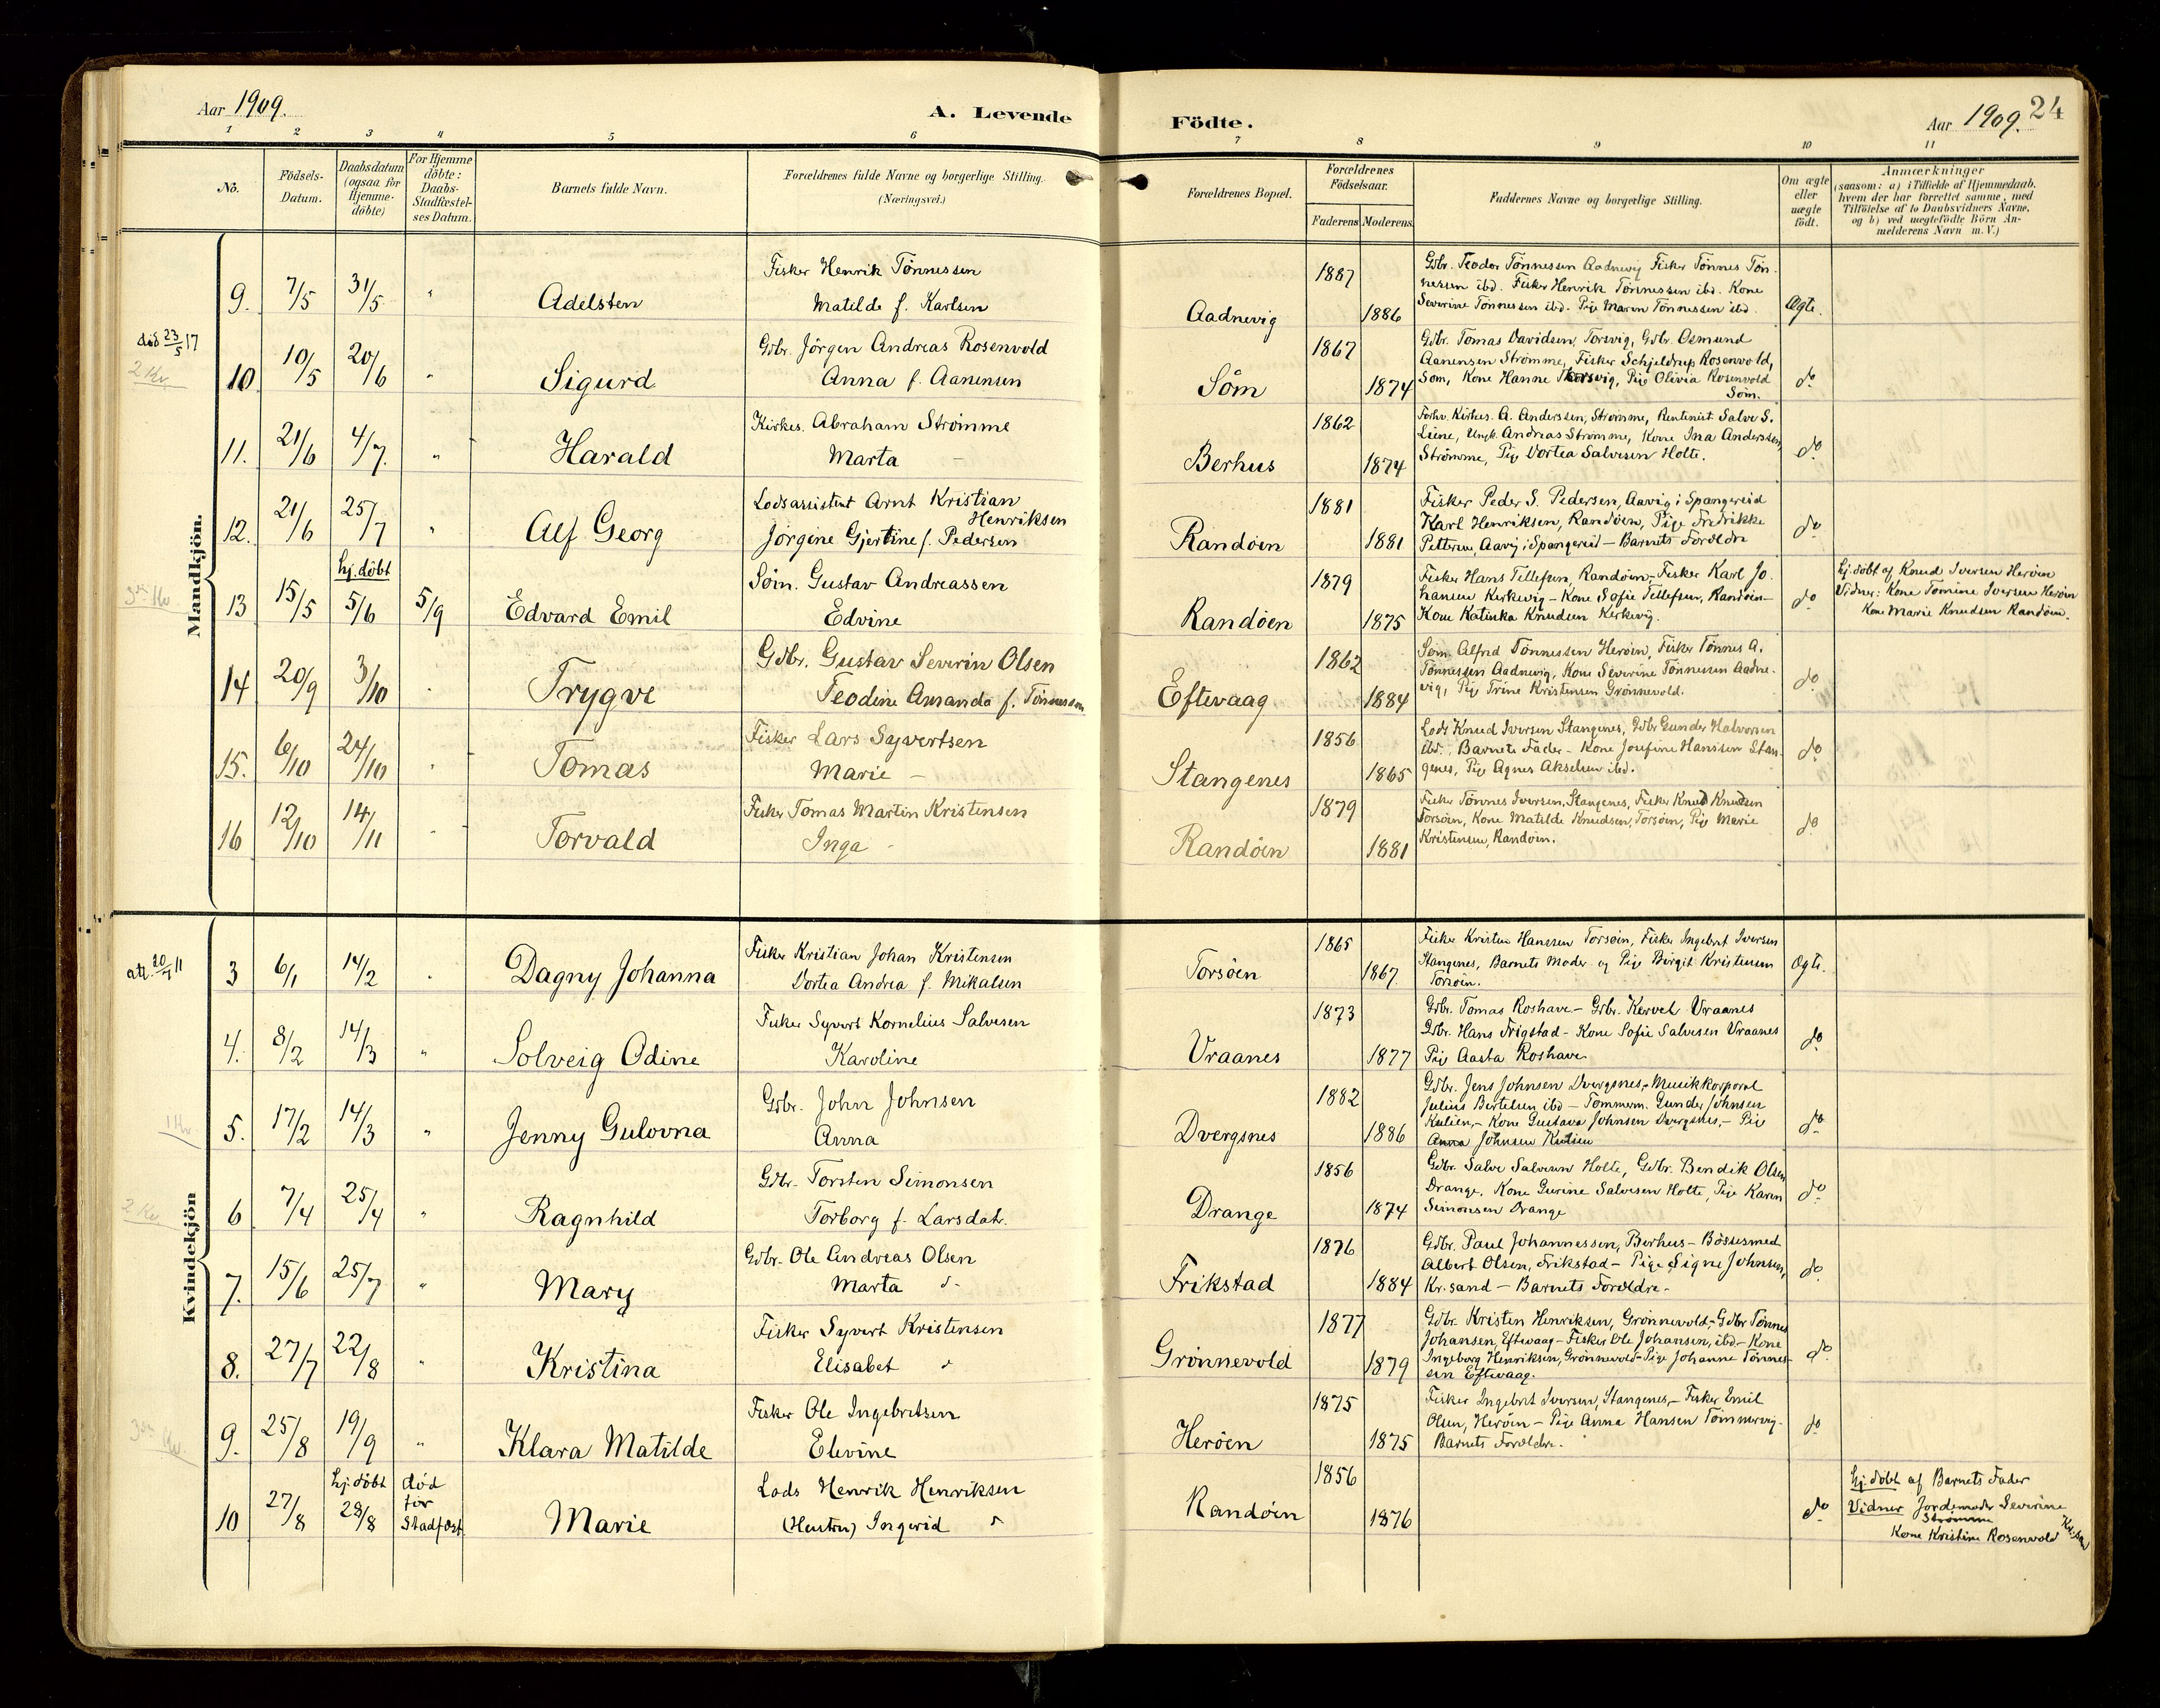 Aar 1909.
A. Levende
Födte.
Aar 1909.
24
1 2 3 4 5 6 7 8 9 10 11
No.
Födsels-
Datum.
Daabsdatum
(ogsaa for
Hjemme-
döbte)
For Hjemme
döbte:
Daabs-
Stadfæstel-
ses Datum.
Barnets fulde Navn.
Forældrenes fulde Navne og borgerlige Stilling.
(Næringsvei.)
Forældrenes Bopæl.
Forældrenes
Födselsaar.
Faderens Moderens
Faddernes Navne og borgerlige Stilling.
Om ægte
eller
uægte
födt.
Anmærkninger
(saasom: a) i Tilfælde af Hjemmedaab,
hvem der har forrettet samme, med
Tilföielse af to Daabsvidners Navne,
og b) ved uegtefödte Börn An-
melderens Navn m. V.)
Mandkjön.
9. 7/5 31/5 " Adelsten
Fisker Henrik Tönnessen
Matilde f. Karlsen
Aadnevig
1887
1886
Gdbr. Teodor Tönnessen Aadnevig Fisker Tönnes Tön-
nessen ibd. Fisker Henrik Tönnessen ibd. Kone
Severine Tönnessen ibd. Pige Maren Tönnessen ibd.
Ægte.
död 23/5 17
2 Kv
10 10/5 20/6 " Sigurd
Gdbr. Jörgen Andreas Rosenvold
Anna f. Aanensen
Söm
1867
1874
Gdbr. Tomas Davidsen, Torsvig, Gdbr. Osmund
Aanensen Strömme, Fisker Schjeldrup Rosenvold,
Söm, Kone Hanne Torsvig, Pige Olivia Rosenvold
Söm.
do
11. 21/6 4/7. " Harald
Kirkes. Abraham Strömme
Marta –
Berhus
1862
1874
Forhv. Kirkes. A. Anderssen, Strömme, Rentenist Salve S.
Liene, Ungk. Andreas Strömme, Kone Ina Anderssen,
Strömme, Pige Dortea Salvesen Holte.
do
12. 21/6 25/7 " Alf Georg
Lodsassistent Arnt Kristian
Henriksen
Jörgine Gjertine f. Pedersen
Randöen
1881
1881
Fisker Peder S. Pedersen, Aavig i Spangereid
Karl Henriksen, Randöen, Pige Fredrikke
Pettersen, Aavig i Spangereid – Barnets Foreldre
do
hj. döbt
13 15/5 5/6 5/9 Edvard Emil
Söm. Gustav Andreassen
Edvine
Randöen
1879
1875
Fisker Hans Tellefsen, Randöen, – Fisker Karl Jo-
hansen Kirkevig – Kone Sofie Tellefsen, Randöen –
Kone Katinka Knudsen Kerkevig.
do
hj. döbt af Knud Iversen Heröen
Vidner: Kone Tomine Iversen Heröen
Kone Marie Knudsen Randöen.
14 20/9 3/10 " Trygve
Gdbr. Gustav Severin Olsen
Teodine Amanda f. Tönnessen
Eftevaag
1862
1884
Söm. Alfred Tönnessen Heröen, Fisker Tönnes A.
Tönnessen Aadnevig, Kone Severine Tönnessen Aadne-
vig, Pige Trine Kristensen Grönnevold.
do
15. 6/10 24/10 " Tomas
Fisker Lars Syvertsen
Marie –
Stangenes
1856
1865
Lods Knud Iversen Stangenes, Gdbr Gunder Halvorsen
ibd., Barnets Fader – Kone Josefine Hanssen Stan-
genes, Pige Agnes Akselsen ibd.
do
16 12/10 14/11 " Torvald
Fisker Tomas Martin Kristensen
Inga –
Randöen
1879
1881
Fisker Tönnes Iversen, Stangenes, Fisker Knud Knudsen
Torsöen, Kone Matilde Knudsen, Torsöen, Pige Marie
Kristensen, Randöen.
do
Kvindekjön
3 6/1 14/2 " Dagny Johanna
Fisker Kristian Johan Kristensen
Dortea Andrea f. Mikalsen
Torsöen
1865
1867
Fisker Kristen Hanssen Torsöen, Fisker Ingebret Iversen
Stangenes, Barnets Moder og Pige Birgit Kristensen
Torsöen.
Ægte.
4. 8/2 14/3 " Solveig Odine
Fisker Syvert Kornelius Salvesen
Karoline
Vraanes
1873
1877
Gdbr. Tomas Roshave – Gdbr. Kervel Vraanes
Gdbr. Hans Frigstad – Kone Sofie Salvesen Vraanes
Pige Aasta Roshave
do
5. 17/2 14/3 " Jenny Gulovna
Gdbr. John Johnsen
Anna
Dvergsnes
1882
1886
Gdbr. Jens Johnsen Dvergsnes, – Musikkorporal
Julius Bertelsen ibd – Tömmerm. Gunder Johnsen
Kulien, – Kone Gustava Johnsen Dvergsnes, – Pige
Anna Johnsen Kulien
do
6 7/4 25/4 " Ragnhild
Gdbr. Torsten Simonsen
Torborg f. Larsdatr.
Drange
1856
1874
Gdbr. Salve Salvesen Holte, Gdbr. Bendik Olsen
Drange, Kone Gurine Salvesen Holte, Pige Karen
Simonsen Drange
do
7. 15/6 25/7 " Mary
Gdbr. Ole Andreas Olsen
Marta
Frikstad
1876
1884
Gdbr. Paul Johannessen, Berhus – Bössesmed
Albert Olsen, Frikstad – Pige Signe Johnsen,
Kr.sand – Barnets Foreldre.
do
8. 27/7 22/8 " Kristina
Fisker Syvert Kristensen
Elisabet
Grönnevold
1877
1879
Gdbr. Kristen Henriksen, Grönnevold, – Gdbr Tönnes
Johansen, Eftevaag – Fisker Ole Johansen, ibd. – Kone
Ingeborg Henriksen, Grönnevold – Pige Johanne Tönnes-
sen Eftevaag.
do
9. 25/8 19/9 " Klara Matilde
Fisker Ole Ingebretsen
Elevine
Heröen
1875
1875
Fisker Ingebret Iversen, Stangenes, – Fisker Emil
Olsen, Heröen – Pige Anna Hansen Tömmervig.
Barnets Foreldre.
do
hj. döbt
10 27/8 28/8 död
för
Stadfæst
Marie
Lods Henrik Henriksen
(Hustru) Ingerid
Randöen
1856
1876
do
hj. döbt af Barnets Fader
Vidner Jordemoder Severine
Strömme
Kone Kristine Rosenvold